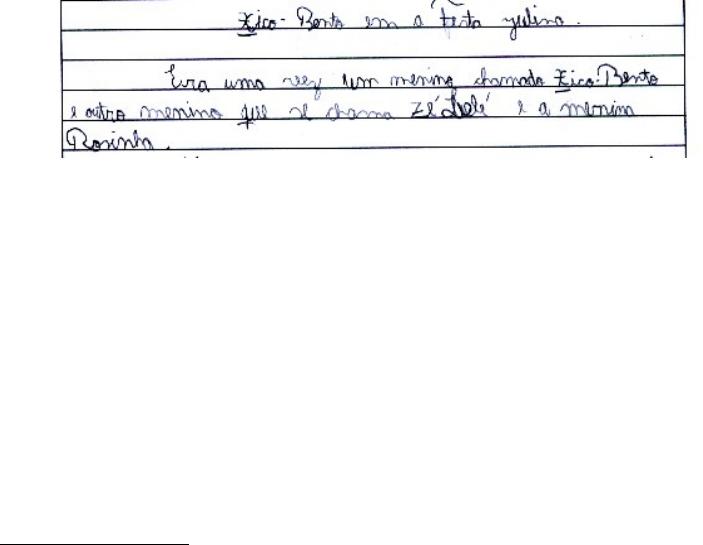 Xico-Bento em a festa yulina.
Era uma vez um menino chamado Xico-Bento
e outro menino que se chama Zé Lelé e a menina
Rosinha.